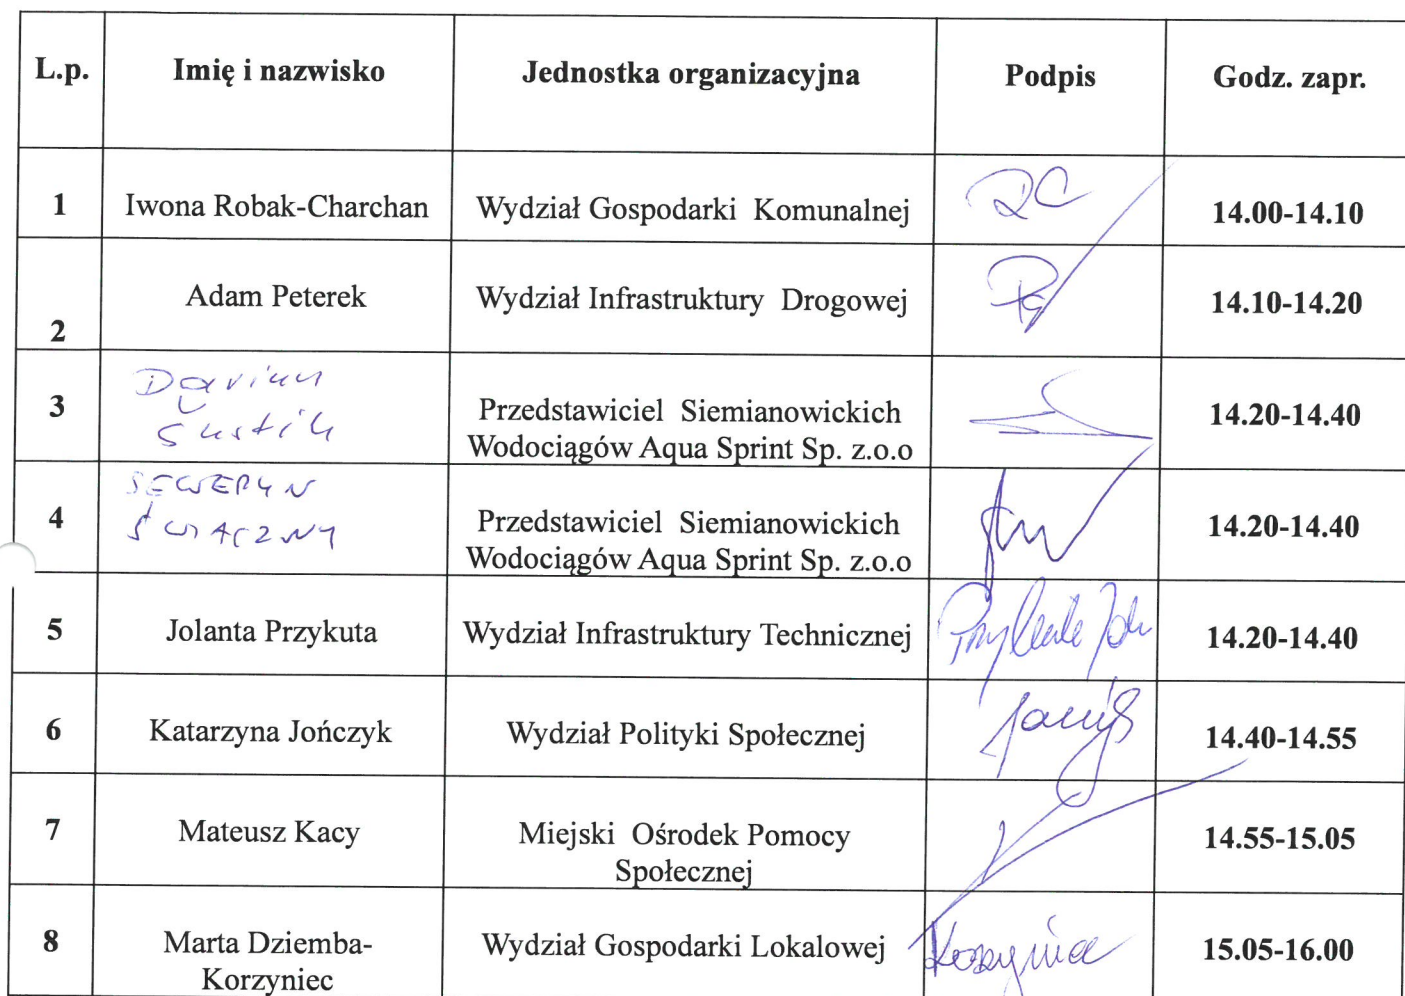 L.p. Imię i nazwisko Jednostka organizacyjna Podpis Godz. zapr.
1 Iwona Robak-Charchan Wydział Gospodarki Komunalnej RC 14.00-14.10
2 Adam Peterek Wydział Infrastruktury Drogowej 14.10-14.20
3 Dariusz Przedstawiciel Siemianowickich
Wodociągów Aqua Sprint Sp. z.o.o 14.20-14.40
4 SEWERYN
ŚWIĄCZNY Przedstawiciel Siemianowickich
Wodociągów Aqua Sprint Sp. z.o.o 14.20-14.40
5 Jolanta Przykuta Wydział Infrastruktury Technicznej 14.20-14.40
6 Katarzyna Jończyk Wydział Polityki Społecznej 14.40-14.55
7 Mateusz Kacy Miejski Ośrodek Pomocy
Społecznej 14.55-15.05
8 Marta Dziemba-
Korzyniec Wydział Gospodarki Lokalowej 15.05-16.00